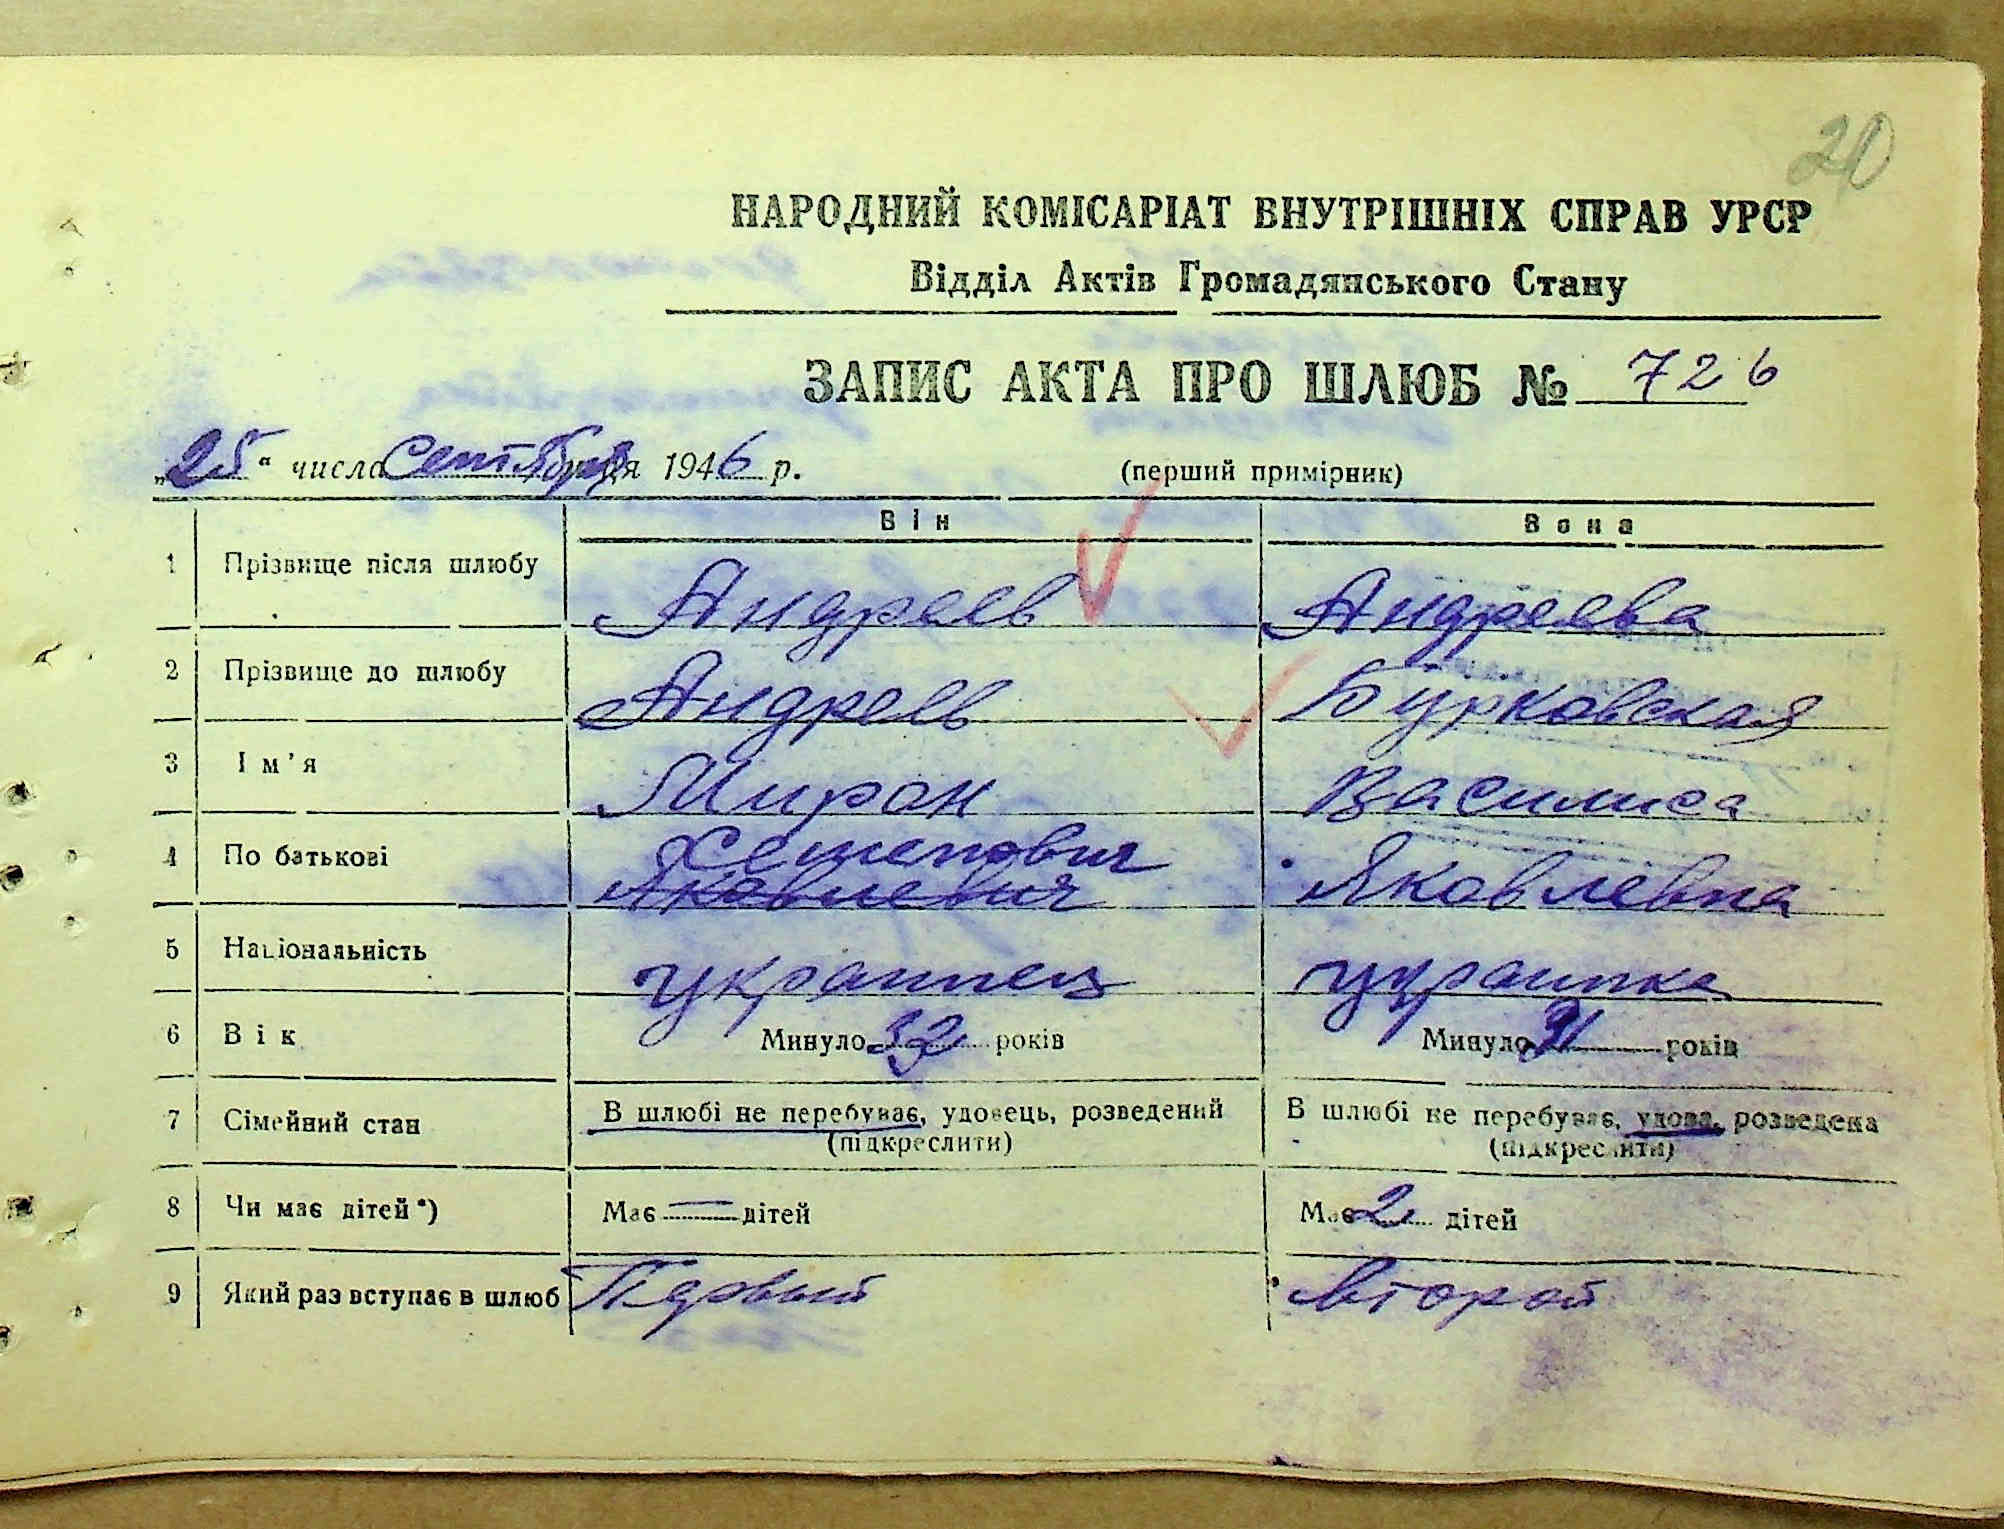 20
НАРОДНИЙ КОМІСАРІАТ ВНУТРІШНІХ СПРАВ УРСР
Відділ Актів Громадянського Стану
ЗАПИС АКТА ПРО ШЛЮБ № 726
„25" числа сентября ця 1946 р. (перший примірник)
Він Вона
1 Прізвище після шлюбу Андреев Андреева
2 Прізвище до шлюбу Андреев Бурковская
3 Ім'я Мирон Василиса
4 По батькові Яковлевич Яковлевна
5 Національність украинец украинка
6 Вік Минуло 32 років Минуло 31 років
7 Сімейний стан В шлюбі не перебуває, удовець, розведений В шлюбі не перебуває, удова, розведена
(підкреслити) (підкреслити)
8 Чи має дітей*) Має — дітей Має 2 дітей
9 Який раз вступає в шлюб Первый Второй